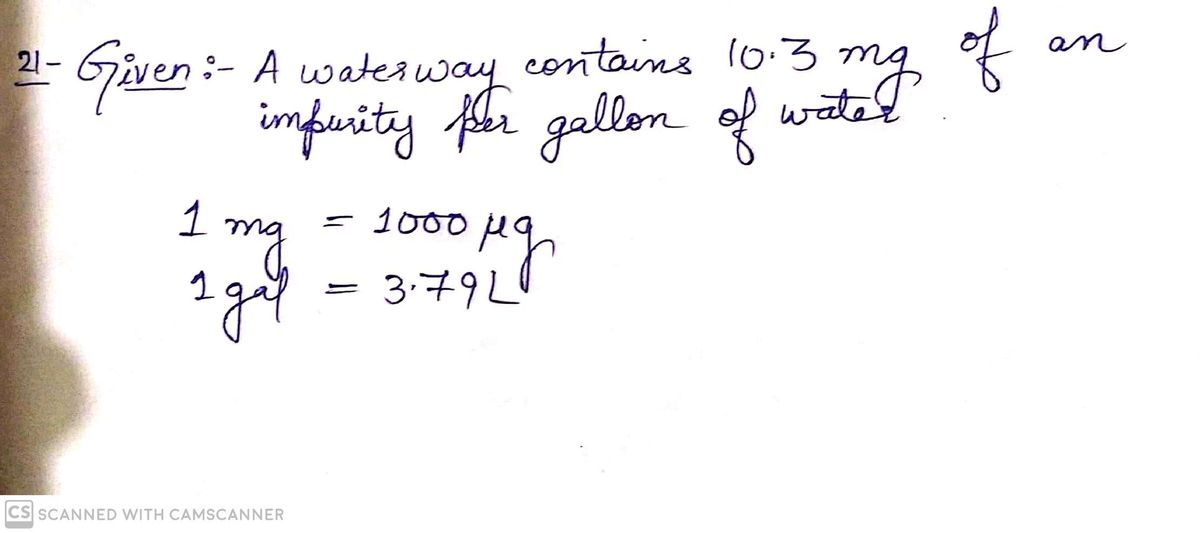 21- Given :- A waterway contains 10.3 mg of an
impurity per gallon of water.
1 mg = 1000 μg
1 gal = 3.79L
CS SCANNED WITH CAMSCANNER